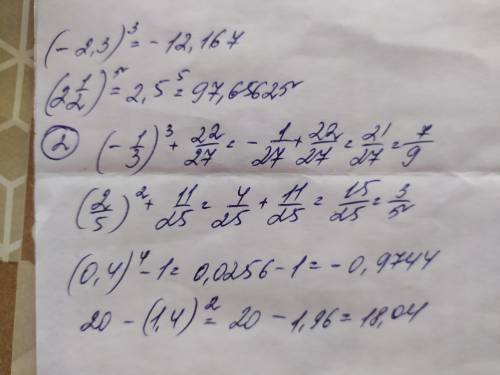 (-2,3)³ = -12,167
(2 1/2)⁵ = 2,5⁵ = 97,65625
② (-1/3)³ + 22/27 = -1/27 + 22/27 = 21/27 = 7/9
(2/5)² + 11/25 = 4/25 + 11/25 = 15/25 = 3/5
(0,4)⁴ - 1 = 0,0256 - 1 = -0,9744
20 - (1,4)² = 20 - 1,96 = 18,04